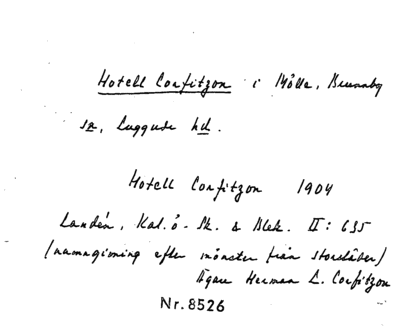 Hotell Corfitzon i Mölle, Brunnby
sn, Luggude hd.
Hotell Corfitzon 1904
Landén, Kal. ö. Sk. & Blek. II: 635
(namngivning efter mönster från storstäder)
Ägare Herman L. Corfitzon
Nr. 8526